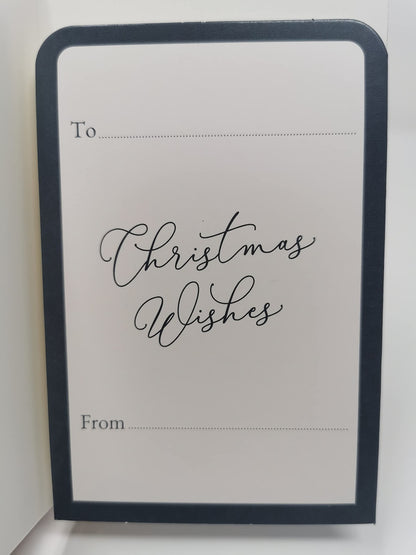 To
Christmas
Wishes
From